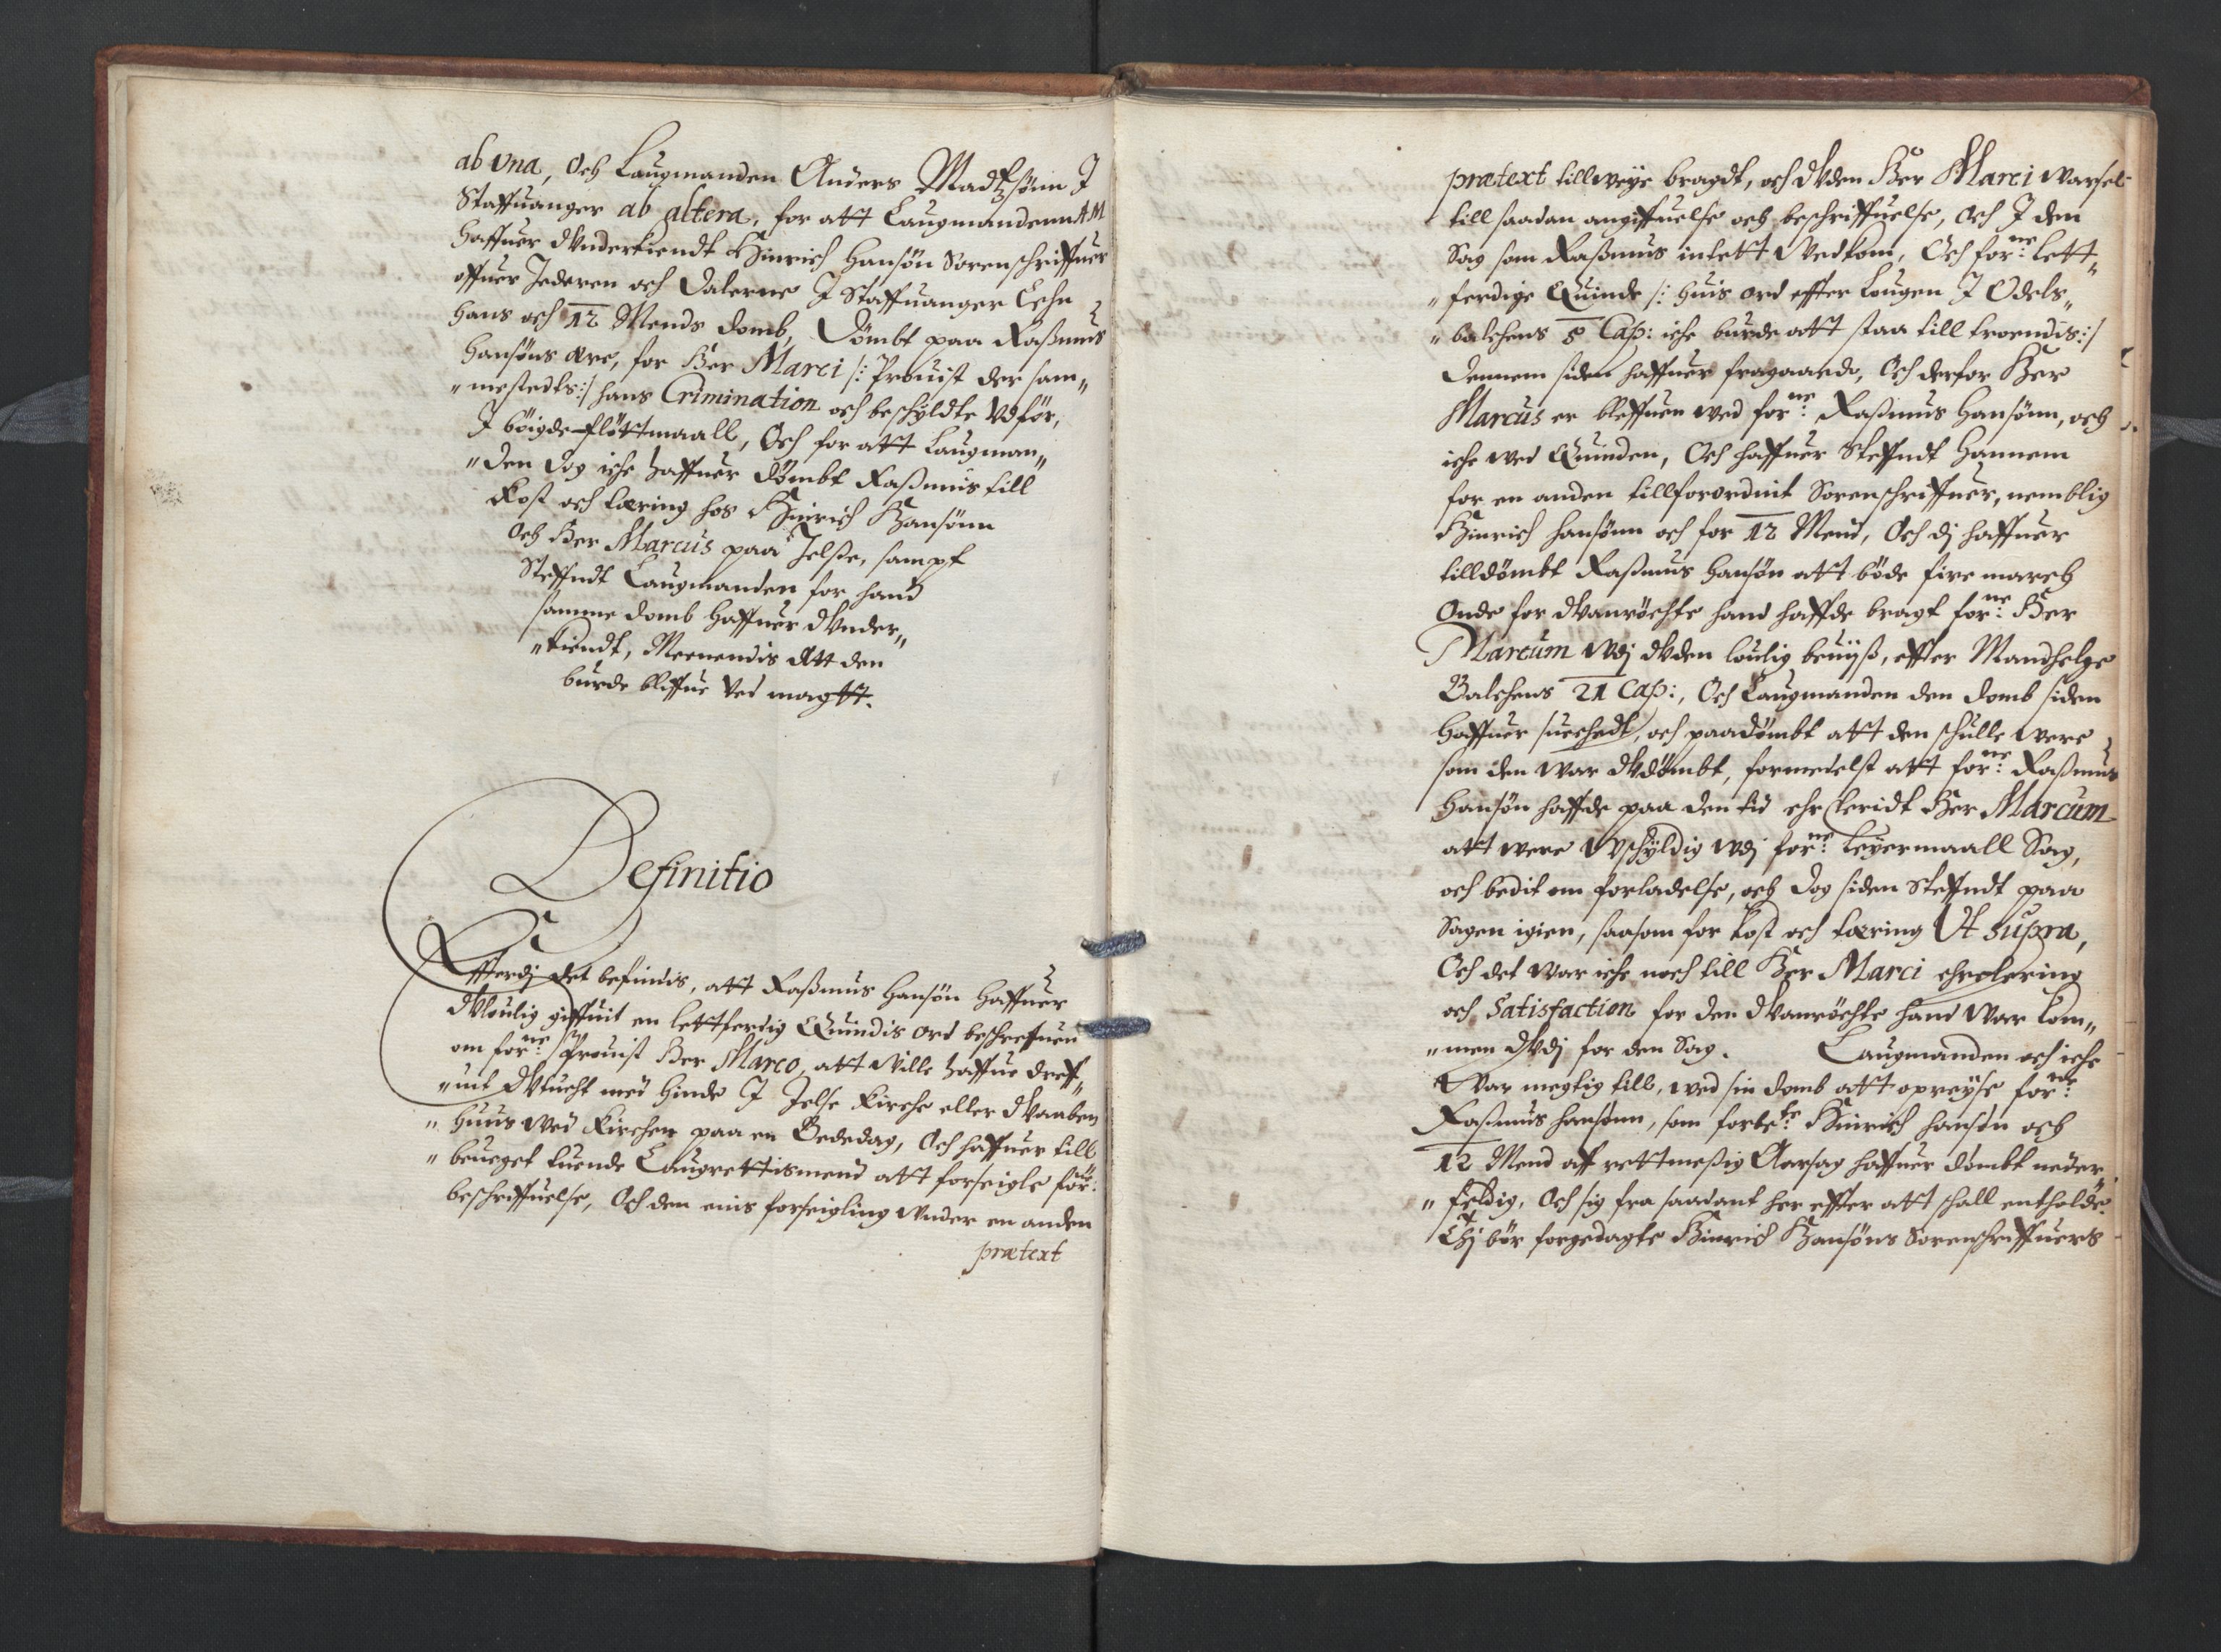 ab una, Och Laugmanden Anders Madtzsönn J
Staffuanger ab altera, for att Laugmandenn AM
haffuer Vnderkiendt Hinrich Hansön Sorenschriffuer
offuer Jederen och Dalerne J Staffuanger Lehn
hans och 12 Mends domb, Dömbt paa Raßmus
Hansöns ære, for Her Marci /: Prouist der sam„
„mesteds:/ hans Crimination och beschyldte Vdför,
J böigde slöttmaall, Och for att Laugman„
„den dog iche haffuer dömbt Raßmus till
Kost och tæring hos Hinrich Hansönn
Och Her Marcus paa Jelße, sampt
Steffndt Laugmanden for hand
samme domb haffuer Vnder„
„kiendt, Meenendis Att den
burde bliffue ved magtt.
Definitio
Efferdj det befindis, att Raßmus Hansön haffuer
Vloulig giffuit en lettferdig Quindis ord beschreffuen
om for:ne Prouist Her Marco, att Ville haffue dreff„
„uit Vtucht med hinde J Jelse Kirche eller Vaaben„
„huus ved Kirchen paa en Bededag, Och haffuer till„
„beueget tuende Laugrettismend att forseigle for:ne
beschriffuelse, Och den enis forseigling vnder en anden
prætext
prætext tillweye bragdt, och Vden Her Marci warsel
till saadan angiffuelse och beschriffuelse, Och J den
Sag som Raßmus intett Vedkom, Och for:ne lett„
„ferdige Quinde /: huis ord effter Lougen J Odels„
„balchens 8 Cap: iche burde att staa till troendis:/
Dennem siden haffuer fragaaed, Och derfor Her
Marcus er bleffuen ved for:ne Raßmus Hansönn, och
iche ved Quinden, Och haffuer Steffndt hannem
for en anden tillforordnit Sorenschriffuer, nemblig
Hinrich Hansönn och for 12 Mend, Och dj haffuer
tilldömbt Raßmus Hansön att böde fire march
Onde for Vanröchte hand haffde bragt for:ne Her
Marcum Vdj Vden loulig beuiiß, effter Mandhelge
Balchens 21 Cap:, Och Laugmanden den domb siden
haffuer suechedt, och paadömbt att den schulle were
som den war Vdömbt, formedelst att for:ne Raßmus
Hansön haffde paa den tid ehrkleridt Her Marcum
att were Vschyldig vdj for:ne Leyermaall Sag,
och bedit om forladelse, och dog siden Steffndt paa
Sagen igien, saasom for kost och tæring Ut supra,
Och det war iche noch till Her Marci ehrclering
och Satisfaction for den Vanröchte hand war kom„
„men Vdj for den Sag. Laugmanden och iche
War megtig till, ved sin domb att opreyse for:ne
Raßmus Hansönn, som forbe:te Hinrich Hansön och
12 Mend aff rettmeßig Aarsag haffuer dömbt neder„
„feldig, Och sig fra saadant her effter att schall entholde.
Thj bör forgedagte Hinrich Hansöns Sorenschriffuers